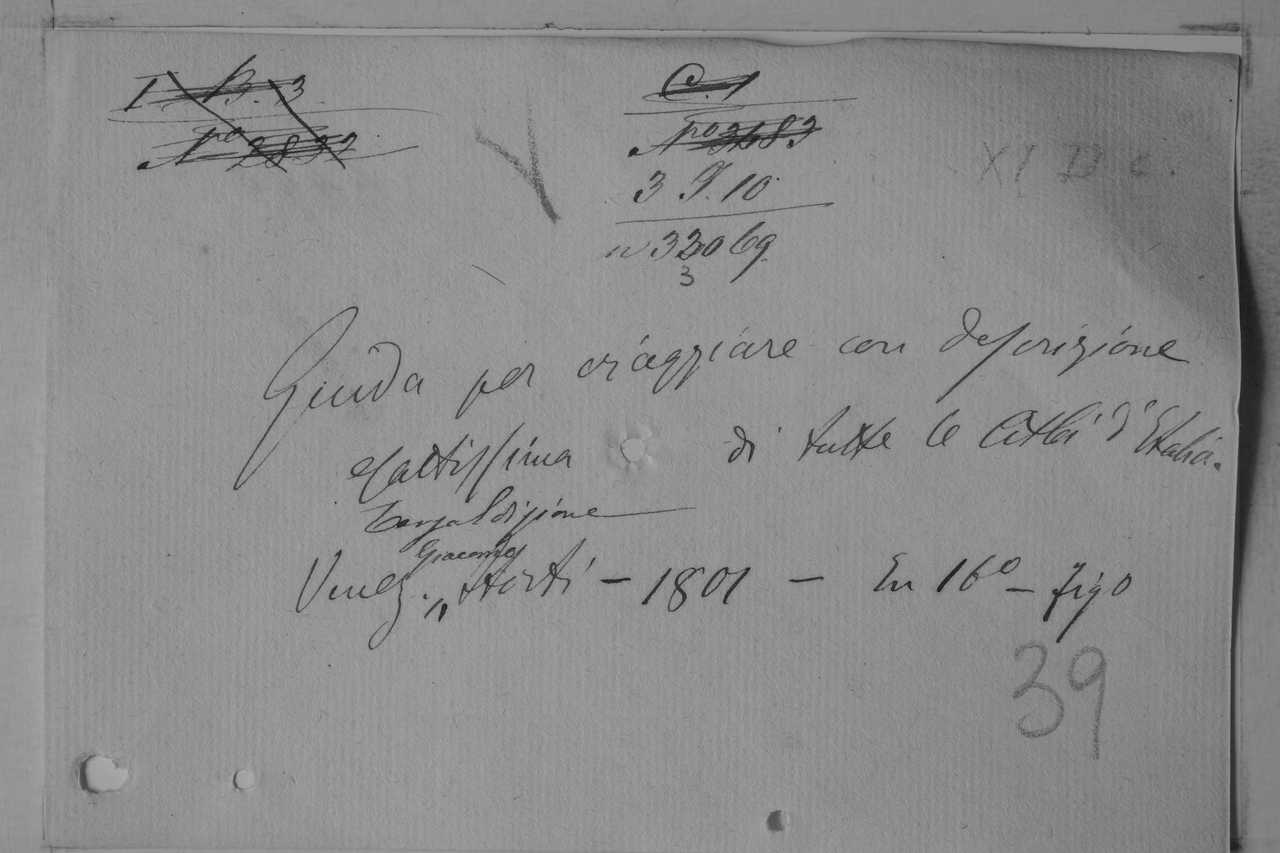 I B. 3
No 2832
C. 1
No 3483
3 T. 10
XI B C.
n 33069
3
Guida per viaggiare con descrizione
esattissima di tutte le Città d'Italia.
Terza Edizione
Giacomo
Venez. „ Storti – 1801 – In 16° – figo
39